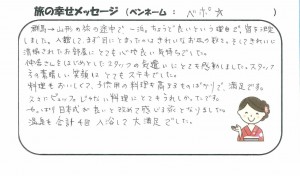 旅の幸せメッセージ (ペンネーム： ペポ☆ )
群馬→山形の旅の途中で一泊。ちょうど良いという理由で、宿を決定
しました。入館して、まず目にとまったのはきれいなお花の数々。そしてきれいに
清掃されたお部屋にとても心地良い気持ちでした。
仲居さんをはじめとしたスタッフの気遣いにとても感動しました。スタッフ
の素晴しい笑顔はとてもステキでした。
料理もおいしくて、子供用の料理も高さまものばかりで、満足です。
スカじゃない料理にとてもうれしかったです。
やっぱり日本式が良いと改めて感じる旅となりました。
温泉も合計4回入浴して大満足でした。